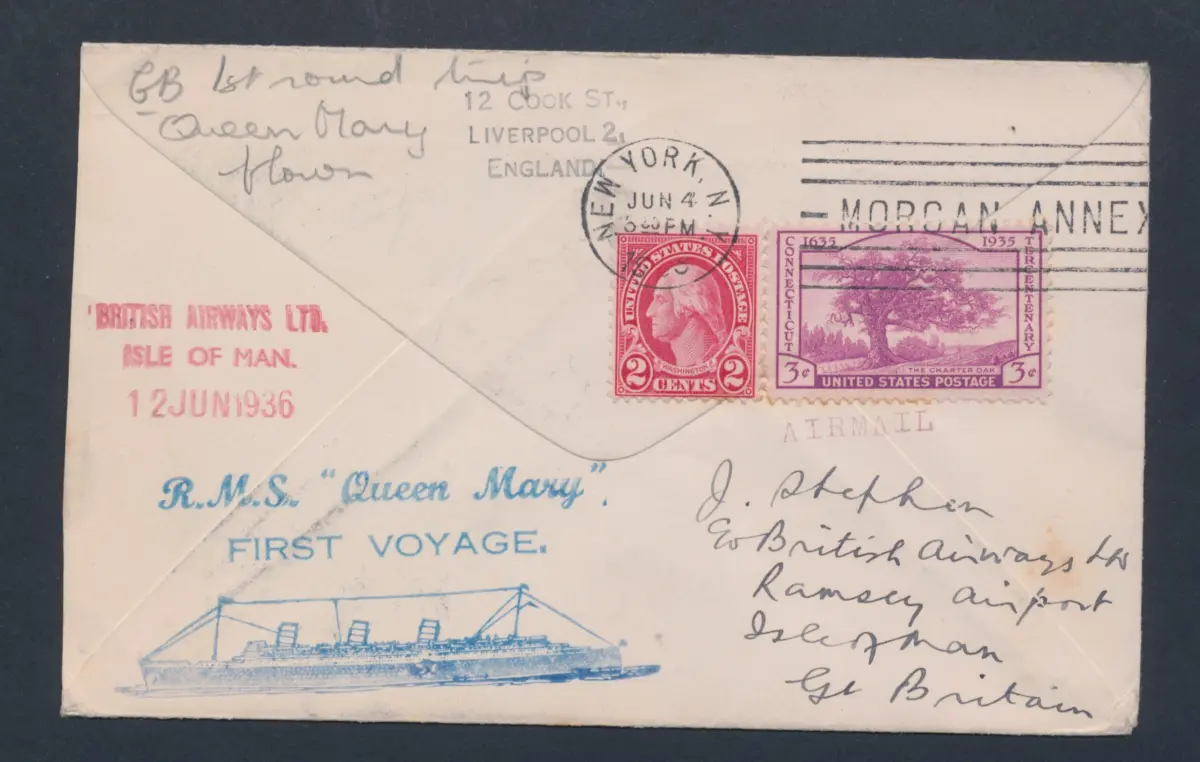 GB 1st round trip
Queen Mary
flown
12 COOK ST.,
LIVERPOOL 2,
ENGLAND
NEW YORK, N.Y.
JUN 4
PM
MORGAN ANNEX
BRITISH AIRWAYS LTD.
ISLE OF MAN.
12 JUN 1936
UNITED STATES POSTAGE
WASHINGTON
2 CENTS 2
1635 1935
CONNECTICUT
TERCENTENARY
THE CHARTER OAK
3¢ UNITED STATES POSTAGE 3¢
AIRMAIL
R.M.S. "Queen Mary".
FIRST VOYAGE.
J. Stephen
c/o British Airways Ltd
Ramsey Airport
Isle of Man
Gt Britain